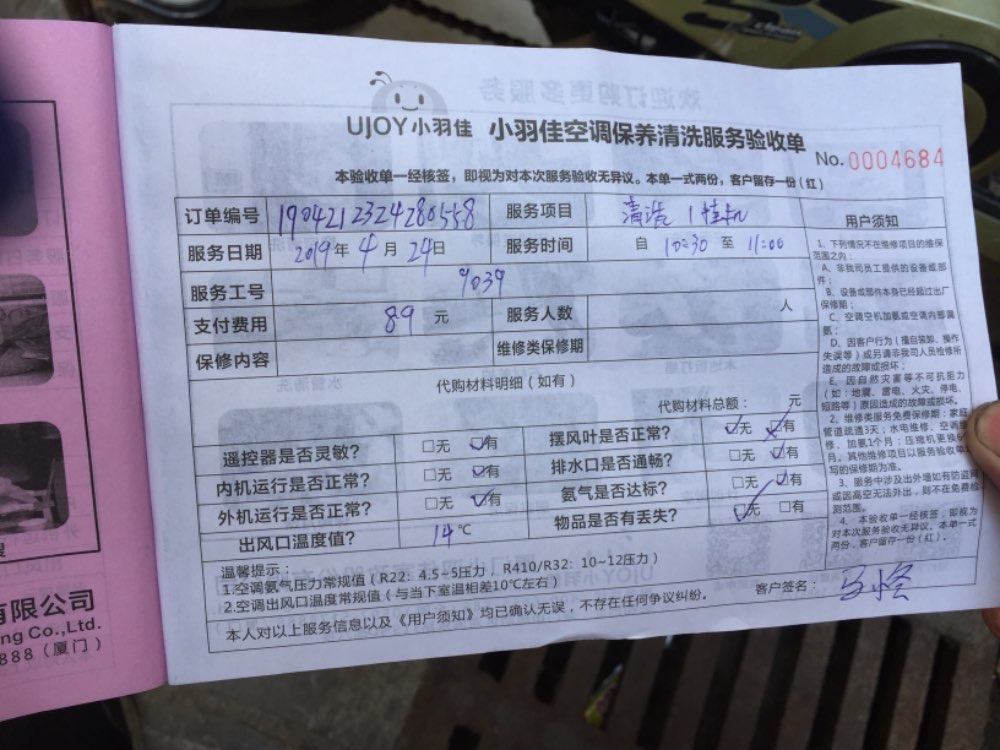 UJOY小羽佳 小羽佳空调保养清洗服务验收单
No.0004684
本验收单一经核签，即视为对本次服务验收无异议。本单一式两份，客户留存一份（红）
订单编号 1904212324280558 服务项目 清洗 1挂机
服务日期 2019年4月24日 服务时间 自10:30至11:00
服务工号 9039
支付费用 89元 服务人数 人
保修内容 维修类保修期
代购材料明细（如有）
代购材料总额： 元
遥控器是否灵敏？ □无 ☑有 摆风叶是否正常？ ☑无 ☑有
内机运行是否正常？ □无 ☑有 排水口是否通畅？ □无 ☑有
外机运行是否正常？ □无 ☑有 氨气是否达标？ □无 ☑有
出风口温度值？ 14℃ 物品是否有丢失？ ☑无 □有
温馨提示：
1.空调氨气压力常规值（R22：4.5~5压力，R410/R32：10~12压力）
2.空调出风口温度常规值（与当下室温相差10℃左右）
客户签名：
本人对以上服务信息以及《用户须知》均已确认无误，不存在任何争议纠纷。
用户须知
1、下列情况不在维修项目的维保
范围之内：
A、非我司员工提供的设备或部
件；
B、设备或部件本身已经超过出厂
保修期；
C、空调空机加氨或空调内部漏
氨；
D、因客户行为（擅自装卸、操作
失误等）或另请非我司人员检修所
造成的故障或损坏；
E、因自然灾害等不可抗拒力
（如：地震、雷电、火灾、停电、
短路等）原因造成的故障或损坏。
2、维修类服务免费保修期：家庭
管道疏通3天；水电维修、空调维
修、加氨1个月；压缩机更换6
月。其他维修项目以服务验收单
写的保修期为准。
3、服务中涉及出外墙如有防盗网
或因高空无法外出，则不在免费检
测范围。
4、本验收单一经核签，即视为
对本次服务验收无异议。本单一式
两份，客户留存一份（红）。
有限公司
ng Co.,Ltd.
888（厦门）